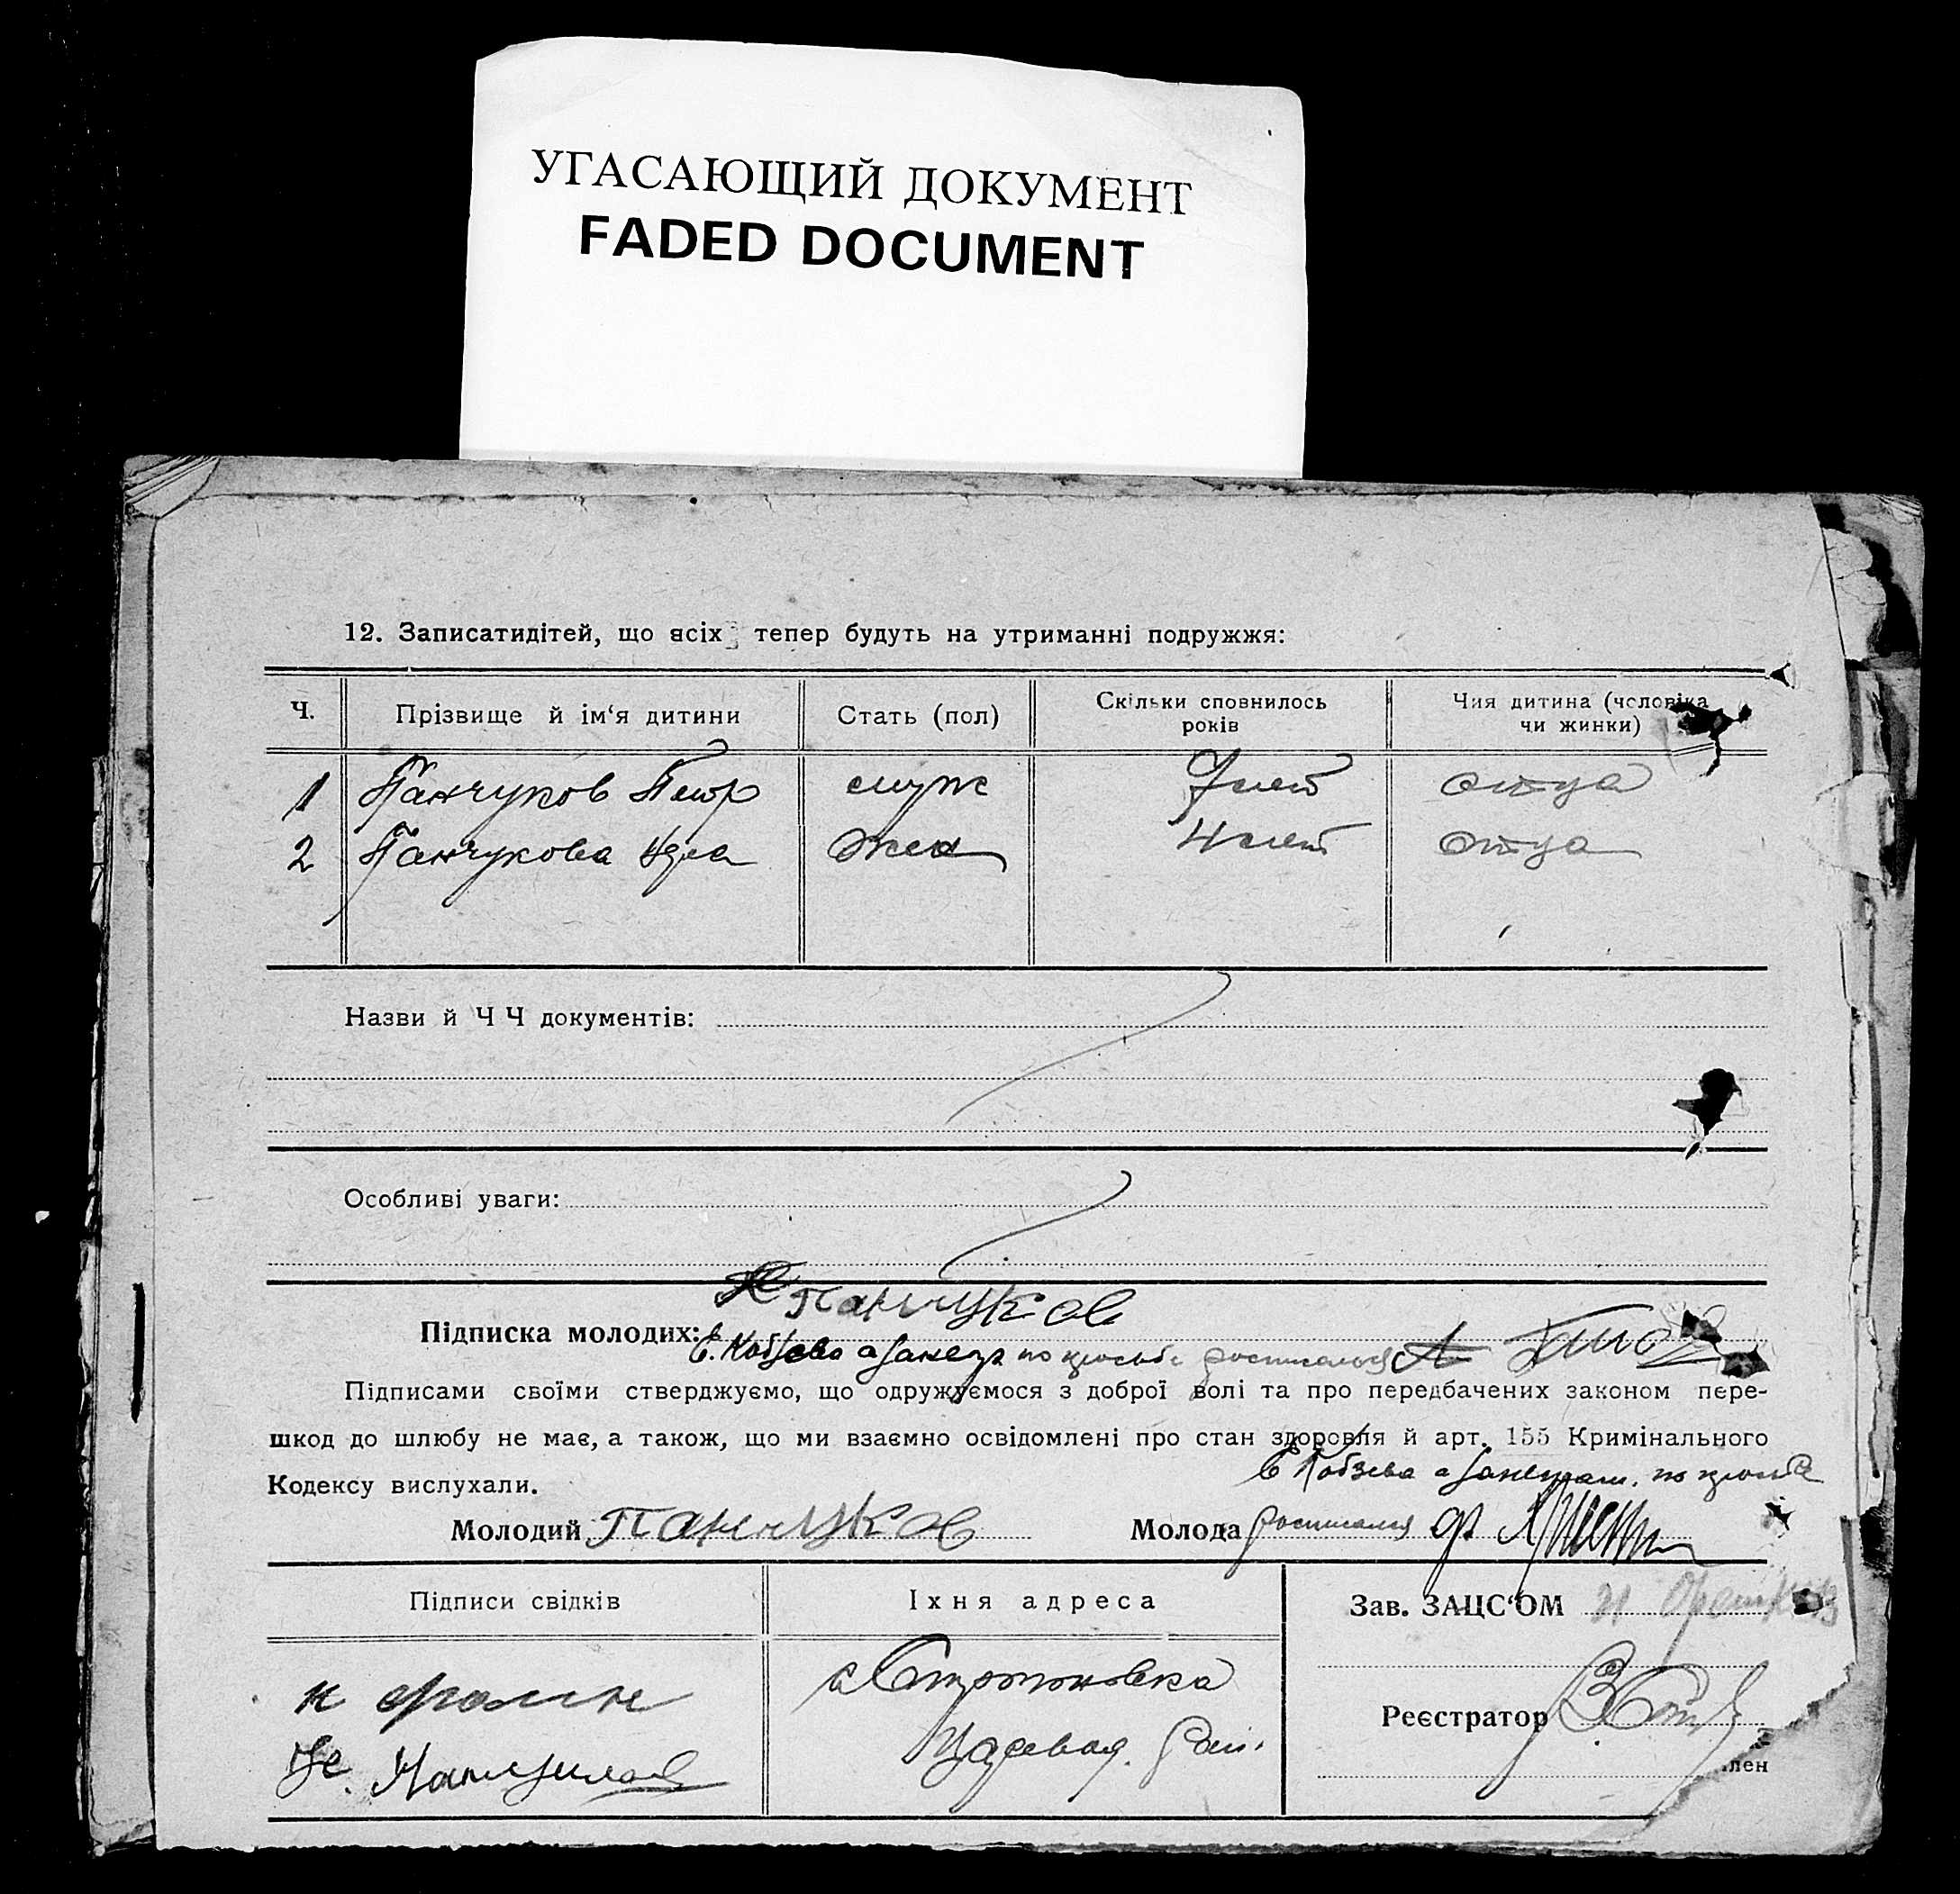 УГАСАЮЩИЙ ДОКУМЕНТ
FADED DOCUMENT
12. Записатидітей, що всіх тепер будуть на утриманні подружжя:
Ч.
Прізвище й ім'я дитини
Стать (пол)
Скільки сповнилось
років
Чия дитина (чоловіка
чи жинки)
1 Панчуков Петр муж 7 лет отца
2 Панчукова жен 4 лет отца
Назви й Ч Ч документів:
Особливі уваги:
Панчуков
Підписка молодих:
Е. Кобзева по просьбе росписался
Підписами своїми стверджуємо, що одружуємося з доброї волі та про передбачених законом пере-
шкод до шлюбу не має, а також, що ми взаємно освідомлені про стан здоровля й арт. 155 Кримінального
Е Кобзева по просьбе
Кодексу вислухали.
Молодий Панчуков
Молода росписался
Підписи свідків
Іхня адреса
Зав. ЗАЦС'ОМ
Реєстратор
лен